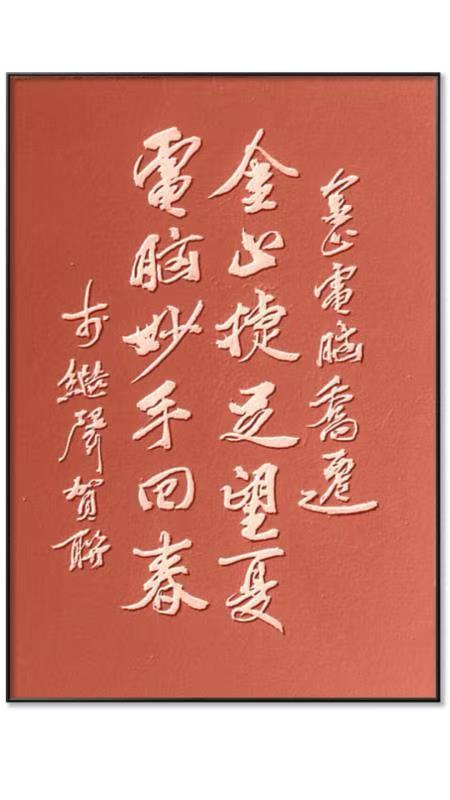 金山電脑喬遷
金山捷足望夏
電脑妙手回春
継聲賀聯